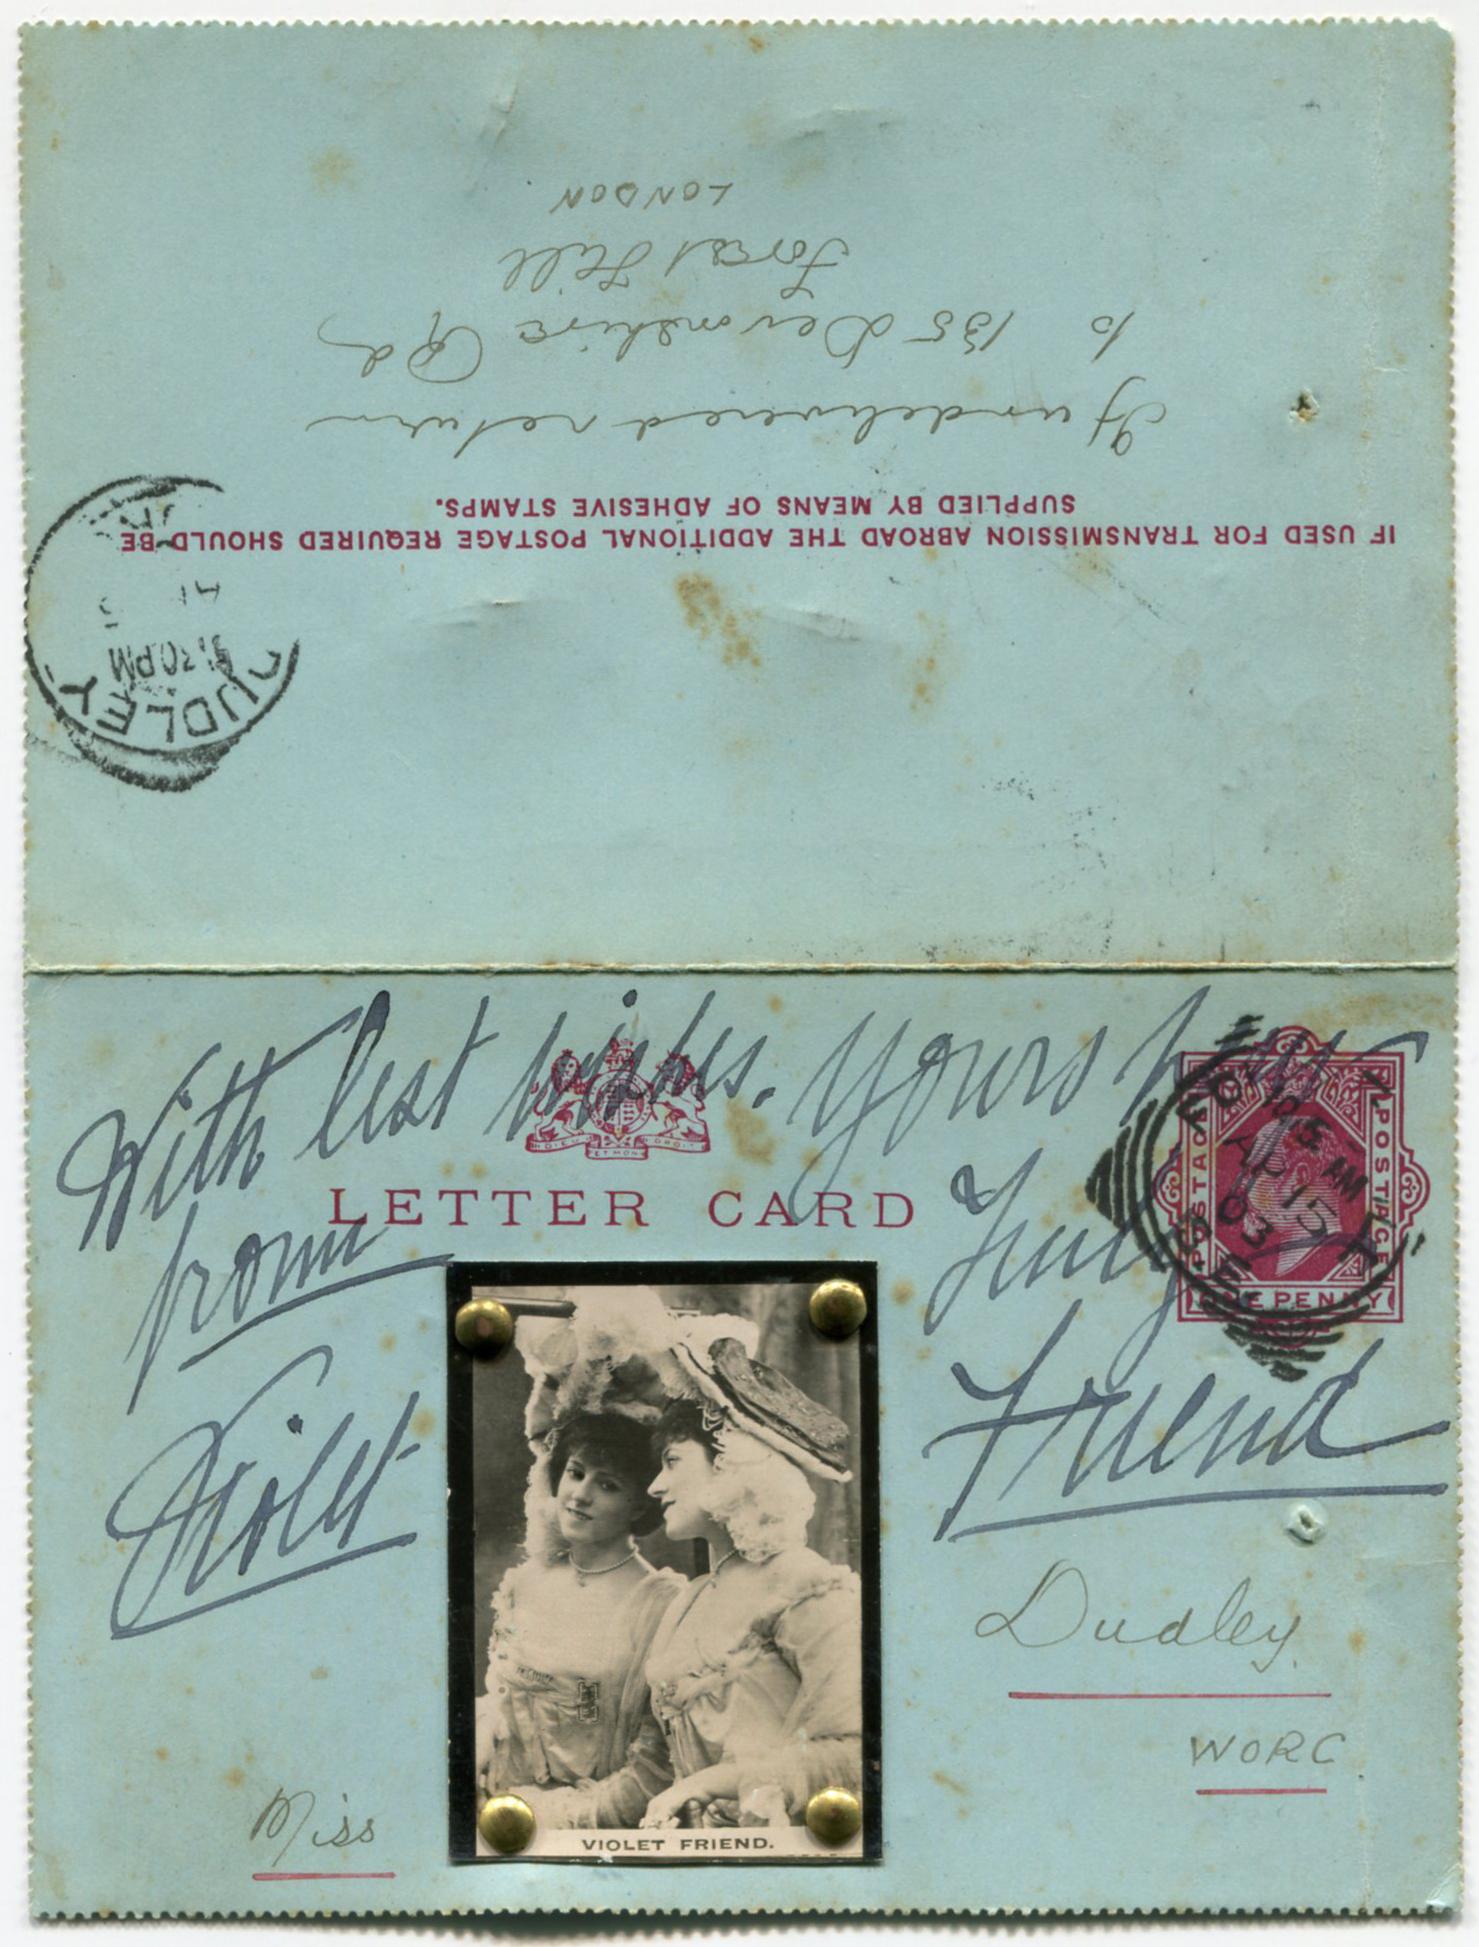 If undelivered return
to 135 Devonshire Rd
Forest Hill
LONDON
IF USED FOR TRANSMISSION ABROAD THE ADDITIONAL POSTAGE REQUIRED SHOULD BE
SUPPLIED BY MEANS OF ADHESIVE STAMPS.
DUDLEY
30PM
With best wishes. Yours very
LETTER CARD
from
Truly
Violet
Friend
DIEU ET MON DROIT
POSTAGE
POSTAGE
ONE PENNY
AM
AP 15
03
Dudley
WORC
Miss
VIOLET FRIEND.